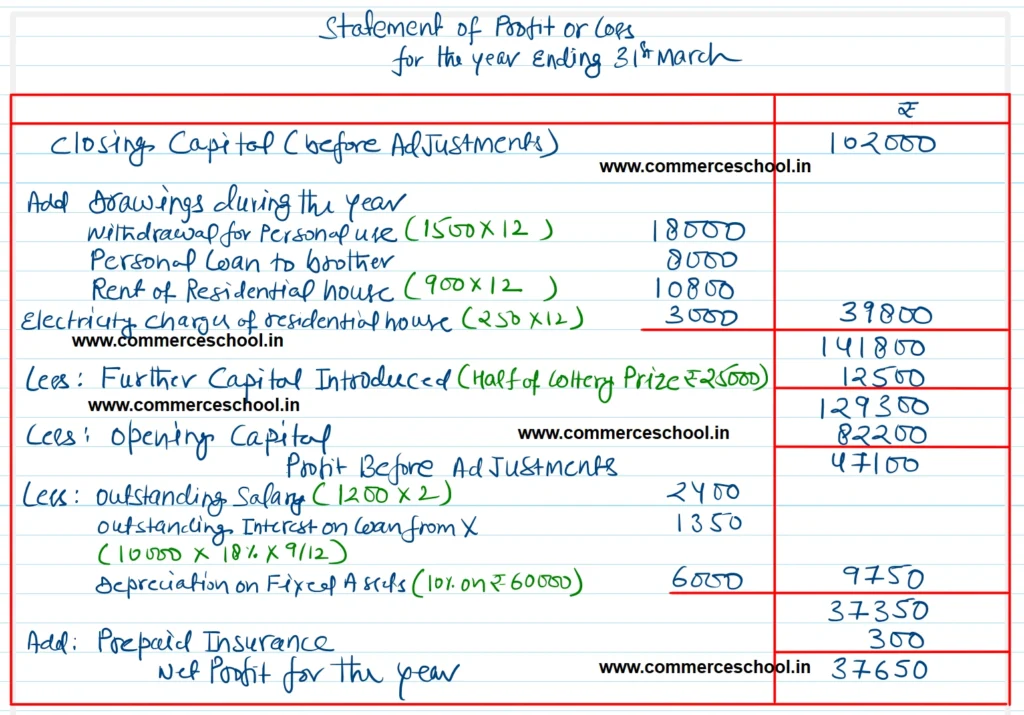 Statement of Profit or Loss
for the year Ending 31st March
₹
Closing Capital (before Adjustments) 102000
www.commerceschool.in
Add Drawings during the year
Withdrawal for Personal use (1500 × 12 ) 18000
Personal Loan to brother 8000
Rent of Residential house (900 × 12 ) 10800
Electricity Charges of residential house (250 × 12) 3000 39800
www.commerceschool.in
141800
Less: Further Capital Introduced (Half of Lottery Prize ₹ 25000) 12500
www.commerceschool.in 129300
Less: Opening Capital www.commerceschool.in 82200
Profit Before Adjustments 47100
Less: Outstanding Salary (1200 × 2) 2400
Outstanding Interest on Loan from X 1350
(10000 × 18% × 9/12)
Depreciation on Fixed Assets (10% on ₹ 60000) 6000 9750
37350
Add: Prepaid Insurance 300
Net Profit for the year www.commerceschool.in 37650